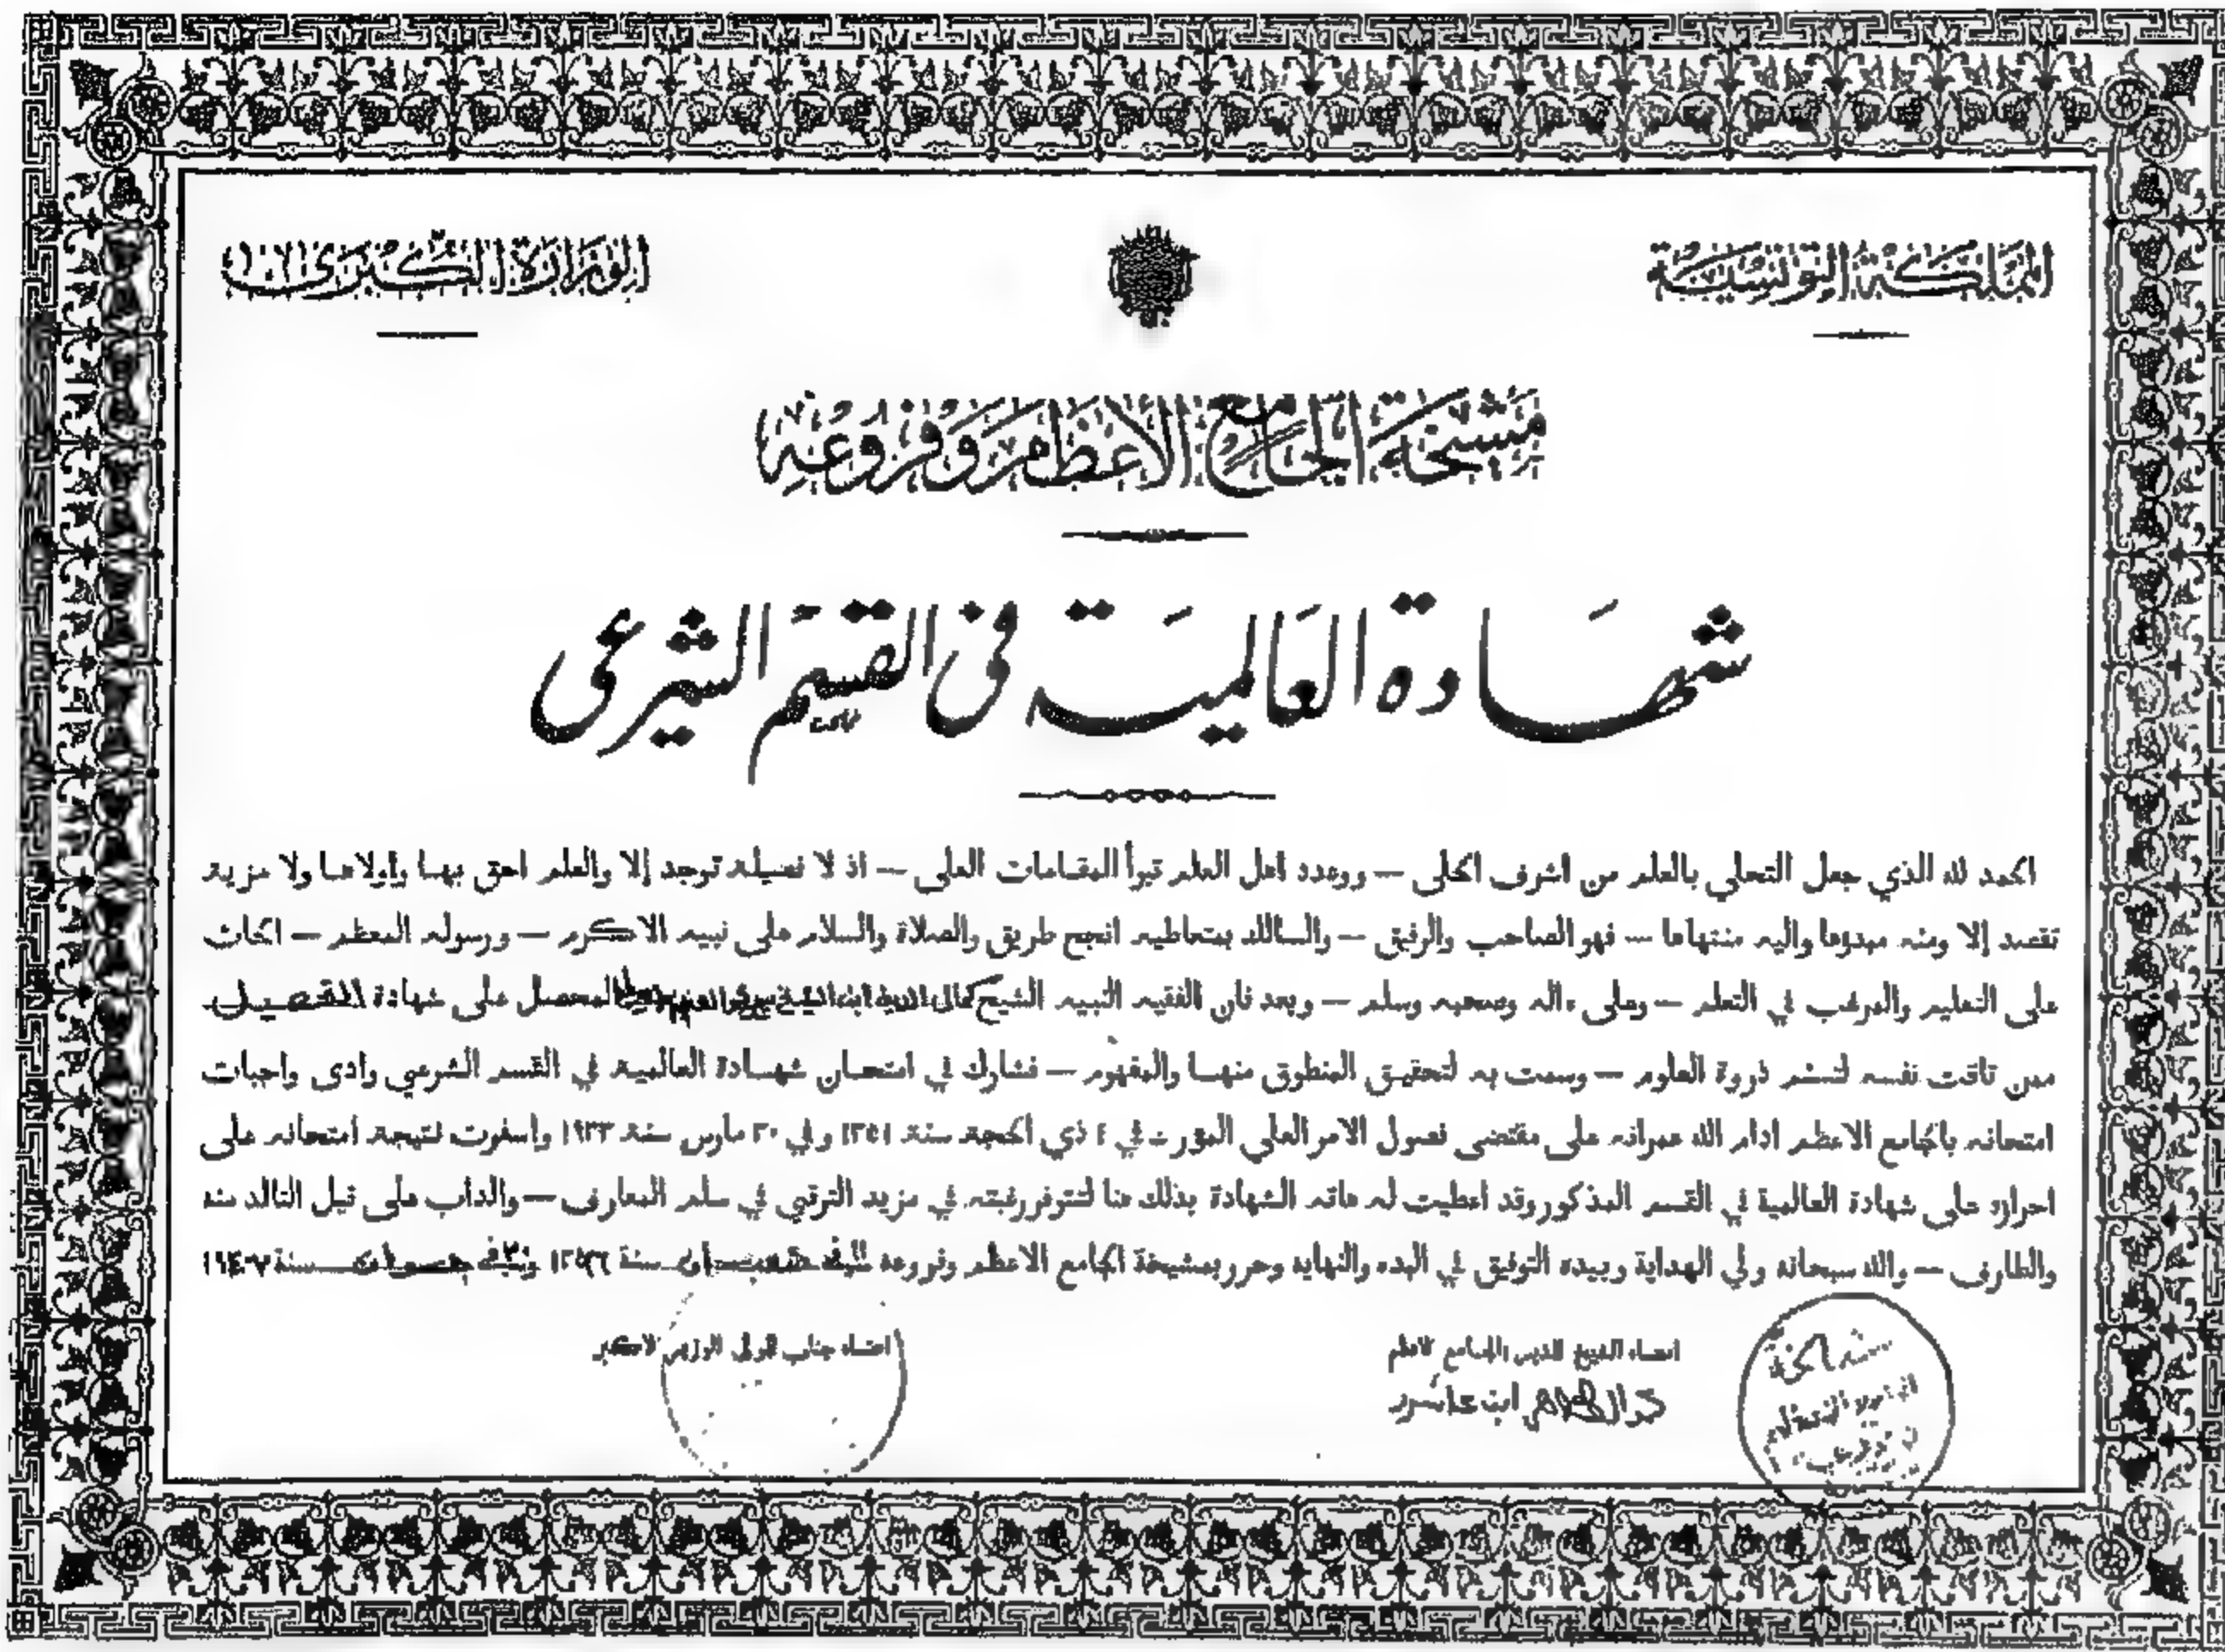 المملكة التونسية
الوزارة الكبرى
مشيخة الجامع الأعظم وفروعه
شهادة العالمية في القسم الشرعي
الحمد لله الذي جعل التحلي بالعلم من اشرف الحلى — ووعد اهل العلم تبوأ المقامات العلى — اذ لا فضيلة توجد إلا والعلم احق بها وأولاها ولا مزية
تقصد إلا ومنه مبدؤها واليه منتهاها — فهو الصاحب والرفيق — والسالك بمتعاطيه انجح طريق والصلاة والسلام على نبيه الاكرم — ورسوله المعظم — الحاث
على التعليم والمرغب في التعلم — وعلى ءاله وصحبه وسلم — وبعد فان الفقيه النبيه الشيخ كمال الدين ابن الشيخ المحصل على شهادة التحصيل
ممن تاقت نفسه لتسنم ذروة العلوم — وسمت به لتحقيق المنطوق منها والمفهوم — فشارك في امتحان شهادة العالمية في القسم الشرعي وادى واجبات
امتحانه بالجامع الاعظم ادام الله عمرانه على مقتضى فصول الامر العلي المؤرخ في ٤ ذي الحجة سنة ١٣٥١ وفي ٣٠ مارس سنة ١٩٣٣ واسفرت نتيجة امتحانه على
احرازه على شهادة العالمية في القسم المذكور وقد اعطيت له هاته الشهادة بذلك هنا لتتوفر رغبته في مزيد الترقي في سلم المعارف — والداب على نيل التالد منه
والطارف — والله سبحانه ولي الهداية وبيده التوفيق في البدء والنهاية وحرر بمشيخة الجامع الاعظم وفروعه في شعبان سنة ١٣٦٦ وفي جوان سنة ١٩٤٧
امضاء الشيخ المدير للجامع الاعظم
محمد الطاهر ابن عاشور
امضاء جناب المولى الوزير الاكبر